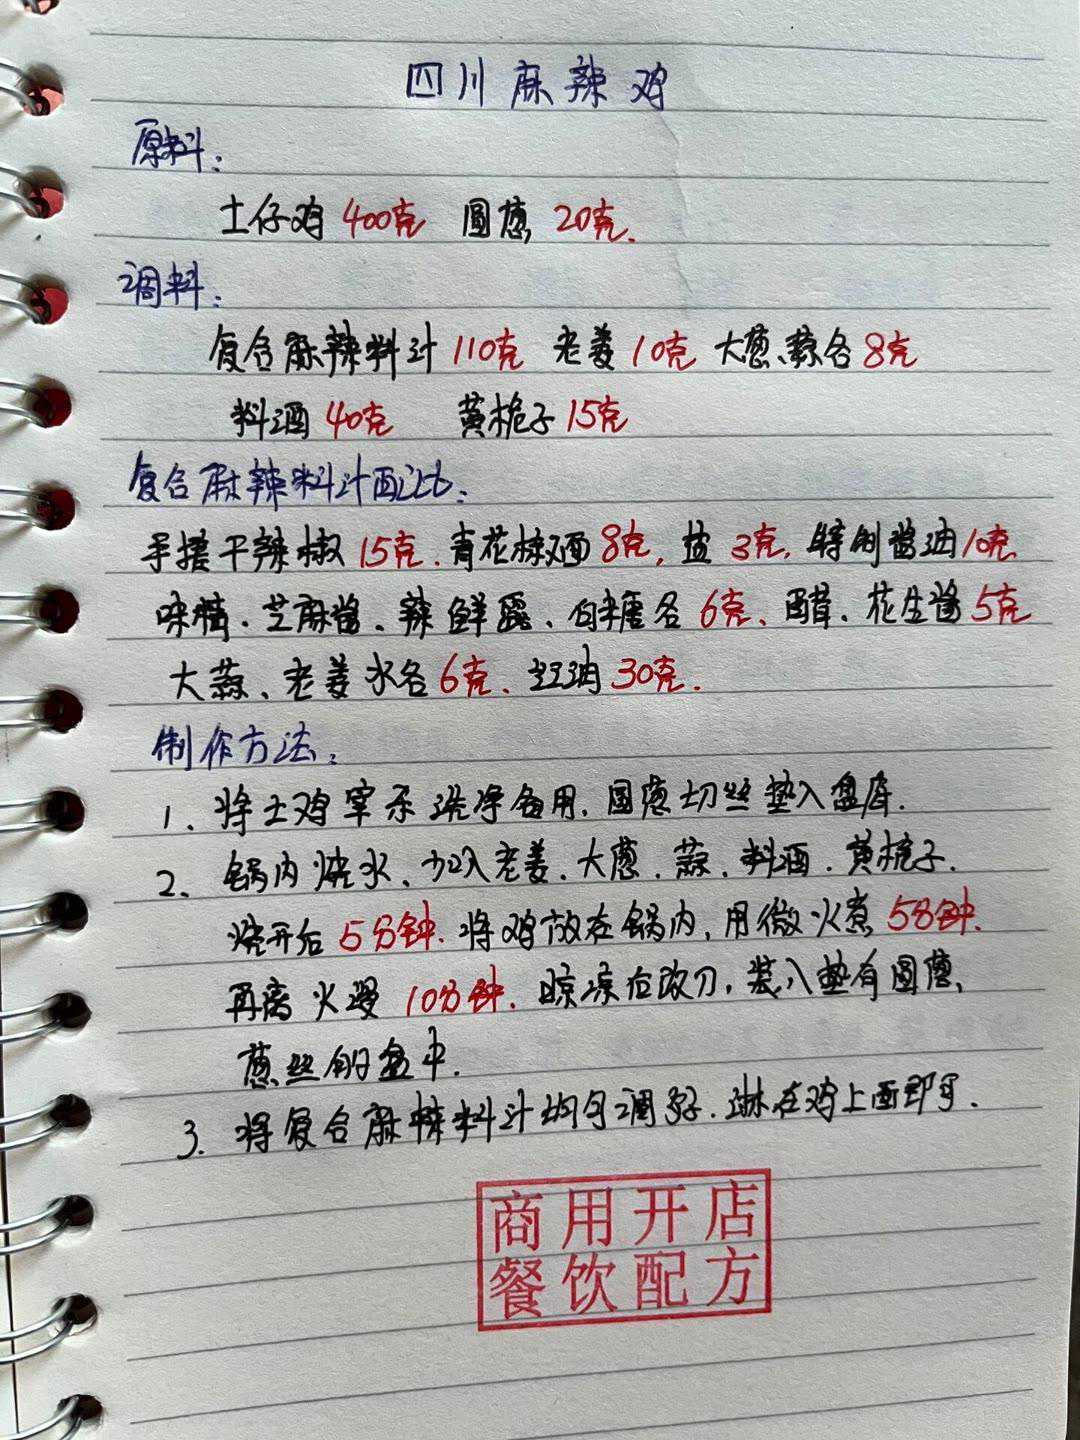 四川麻辣鸡
原料:
土仔鸡 400克 圆葱 20克.
调料:
复合麻辣料汁 110克 老姜 10克 大葱、蒜各 8克
料酒 40克 黄栀子 15克
复合麻辣料汁配比:
手搓干辣椒 15克. 青花椒面 8克, 盐 3克, 特制酱油 10克
味精、芝麻酱、辣鲜露、白糖各 6克、醋、花生酱 5克
大蒜、老姜水各 6克、红油 30克.
制作方法:
1、将土鸡宰杀洗净备用, 圆葱切丝垫入盘底.
2、锅内烧水、加入老姜、大葱、蒜、料酒、黄栀子.
烧开后 5分钟. 将鸡放在锅内, 用微火煮 5分钟.
再离火浸 10分钟. 晾凉后改刀, 装入垫有圆葱,
葱丝的盘中.
3、将复合麻辣料汁均匀调好. 淋在鸡上面即可.
商用开店
餐饮配方